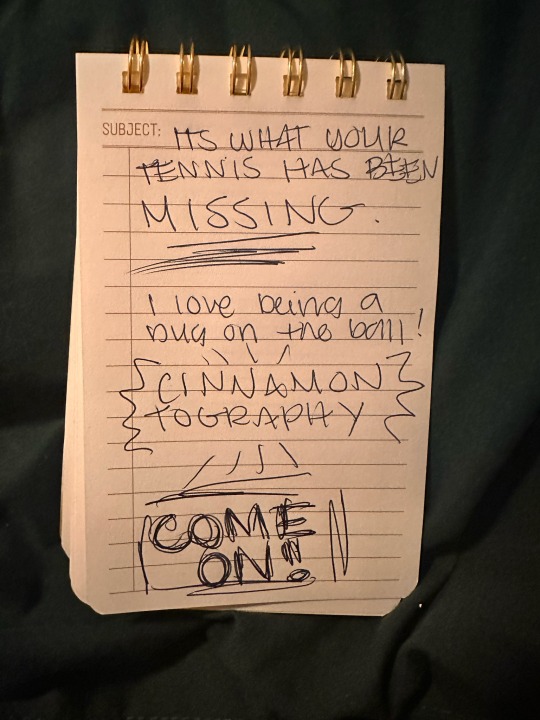 SUBJECT: ITS WHAT YOUR
TENNIS HAS BEEN
MISSING.
I love being a
bug on the ball!
CINNAMON
TOGRAPHY
COME
ON!